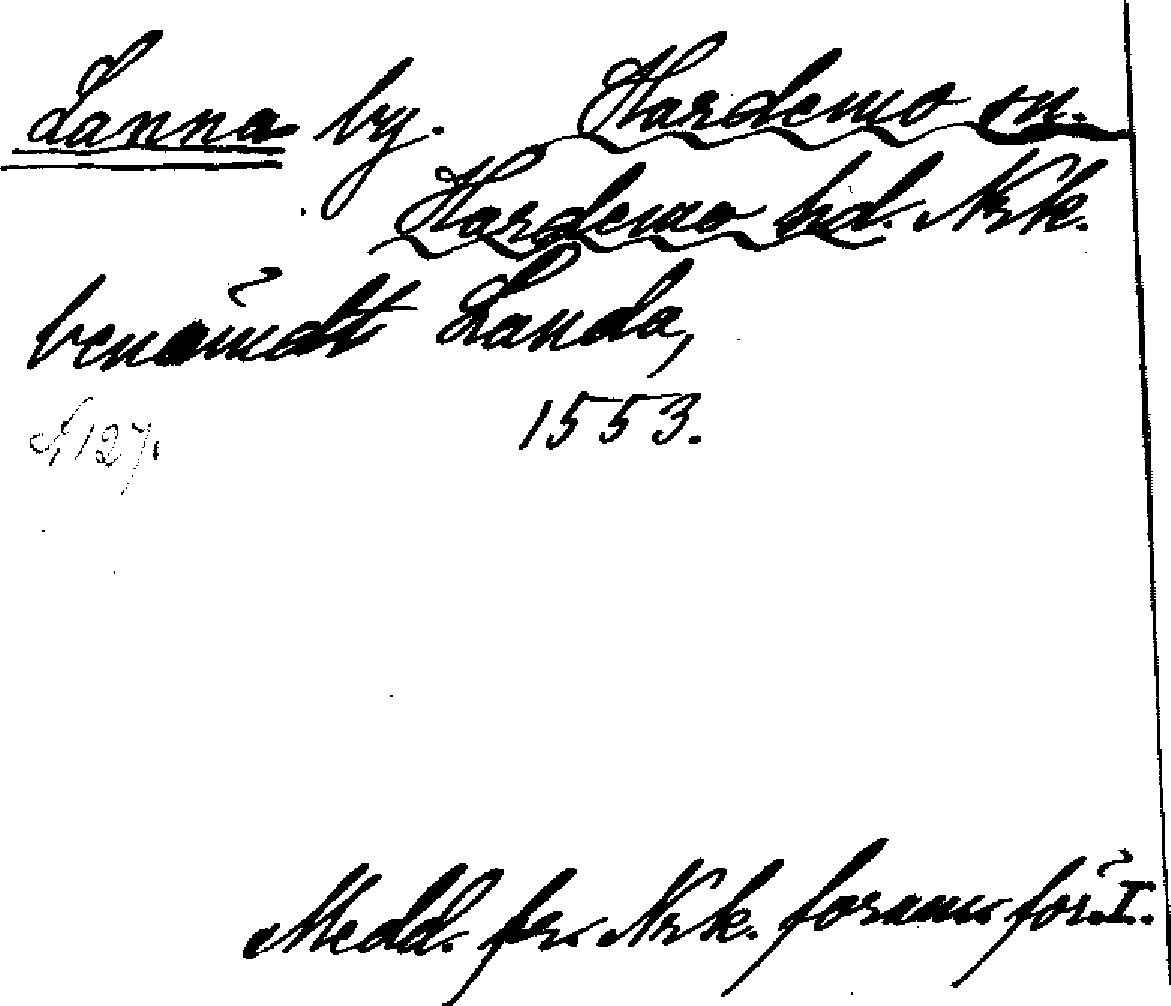 Lanna by. Hardemo sn.
Hardemo hd. Nrk.
benämdt Landa,
1553.
S 127.
Medd. fr. Nrk. fornm. för. I.